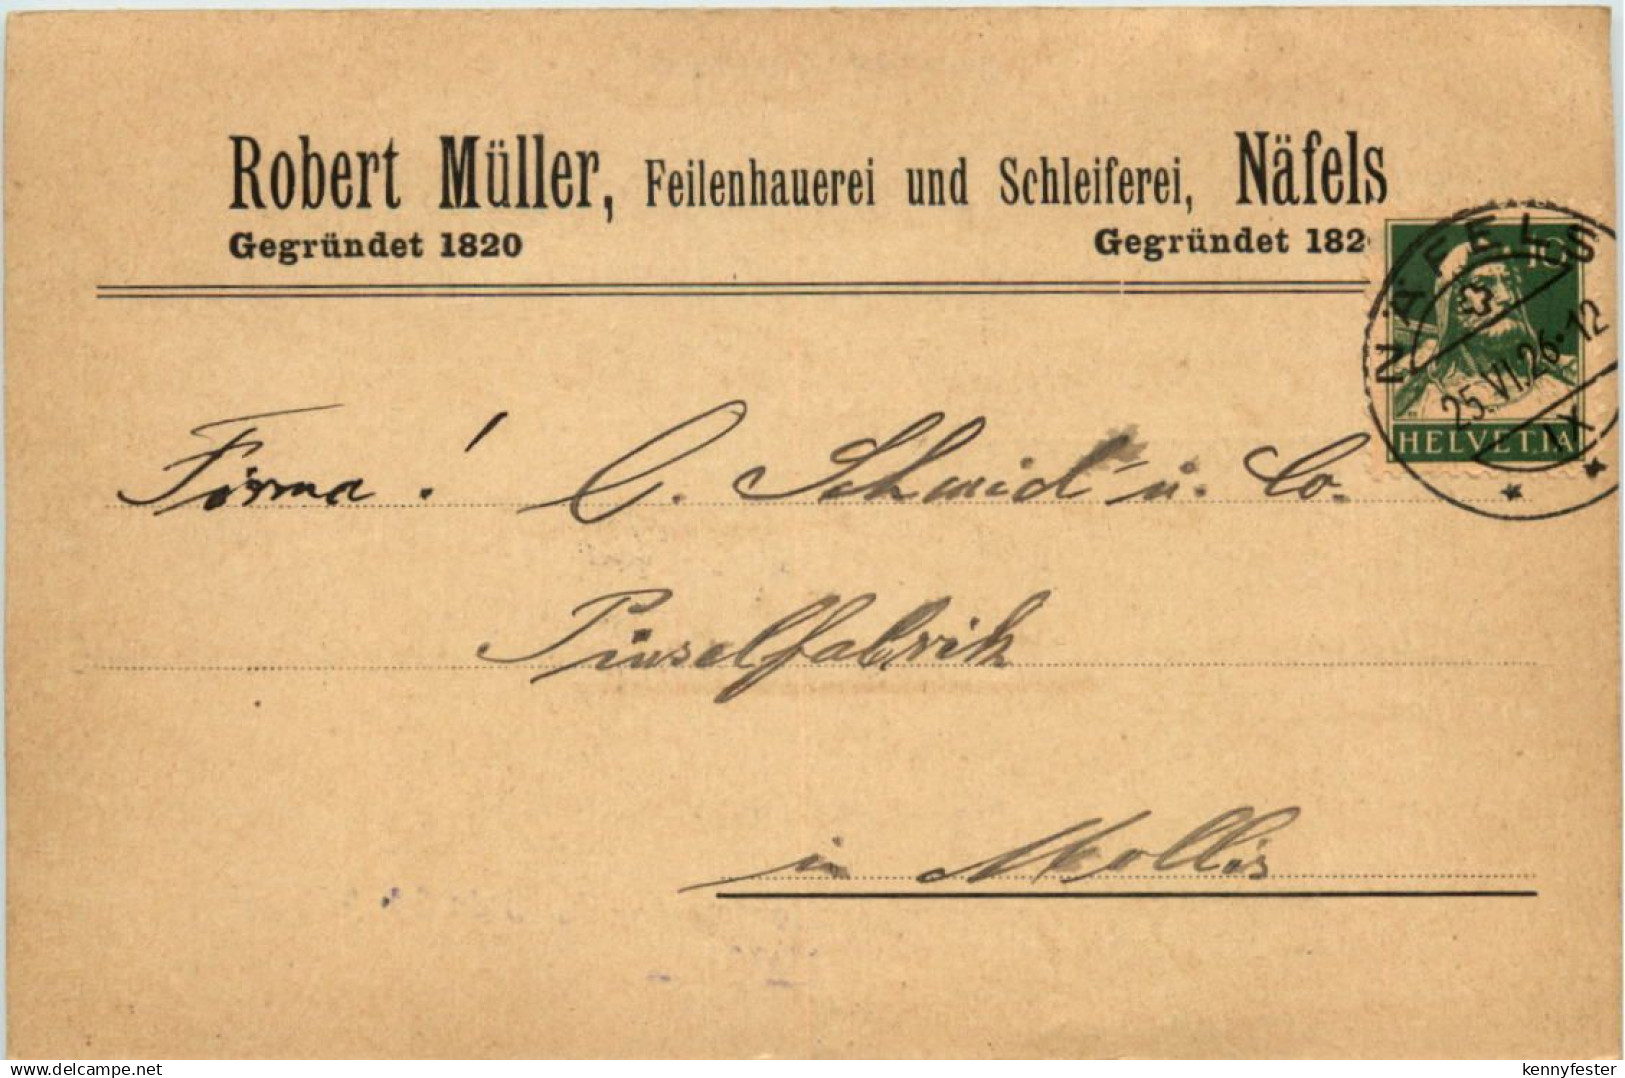 Robert Müller, Feilenhauerei und Schleiferei, Näfels
Gegründet 1820 Gegründet 182
10
NÄFELS
25.VI.26.12
IX
HELVETIA
Firma! C. Schmid u. Co.
Pinselfabrik
in Mollis
delcampe.net
kennyfester